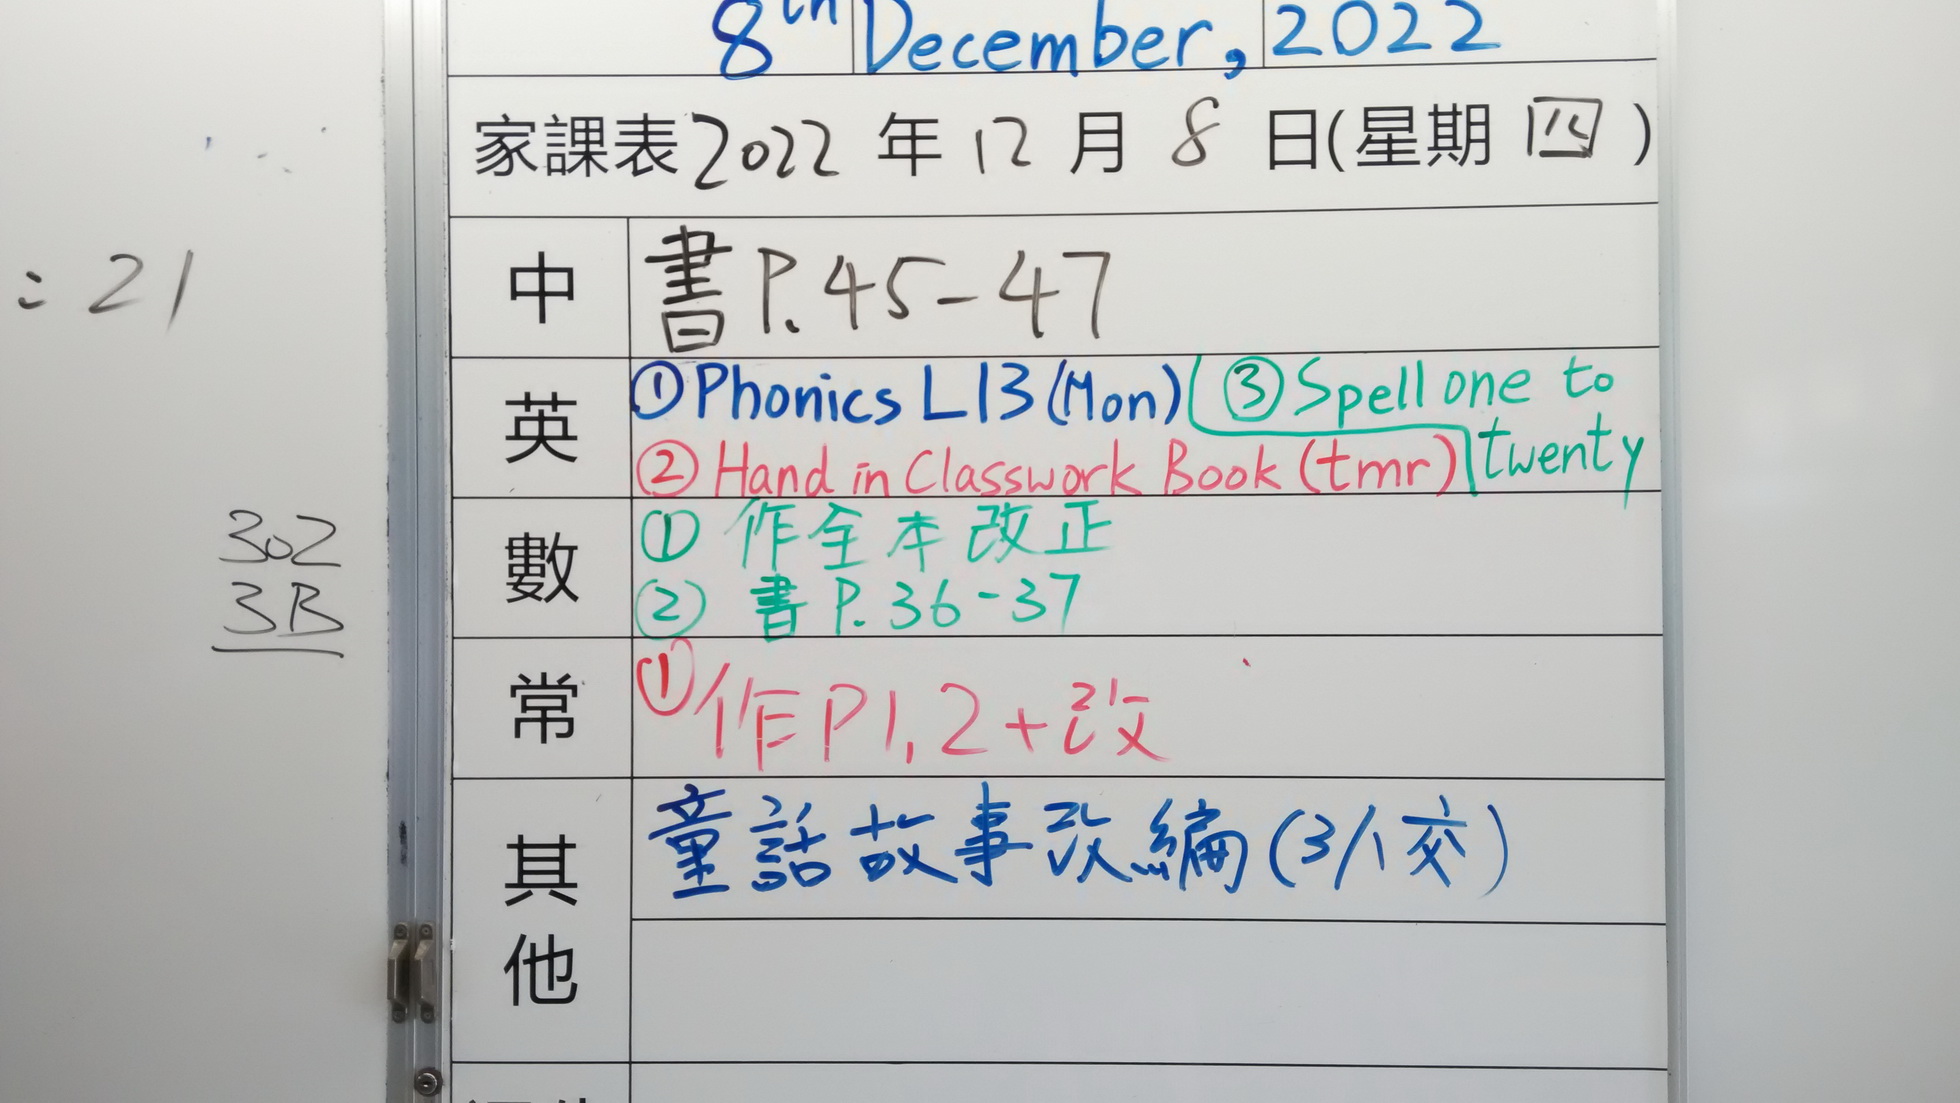 8th December, 2022
家課表 2022 年 12 月 8 日(星期 四 )
中 書 P.45-47
英 ① Phonics L13 (Mon) ③ Spell one to twenty
② Hand in Classwork Book (tmr)
數 ① 作全本改正
② 書 P.36-37
常 ① 作 P1,2+改
其他 童話故事改編 (3/1交)
= 21
302
3B